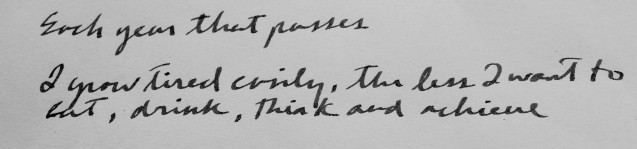 Each year that passes
I grow tired easily, the less I want to
eat, drink, think and achieve